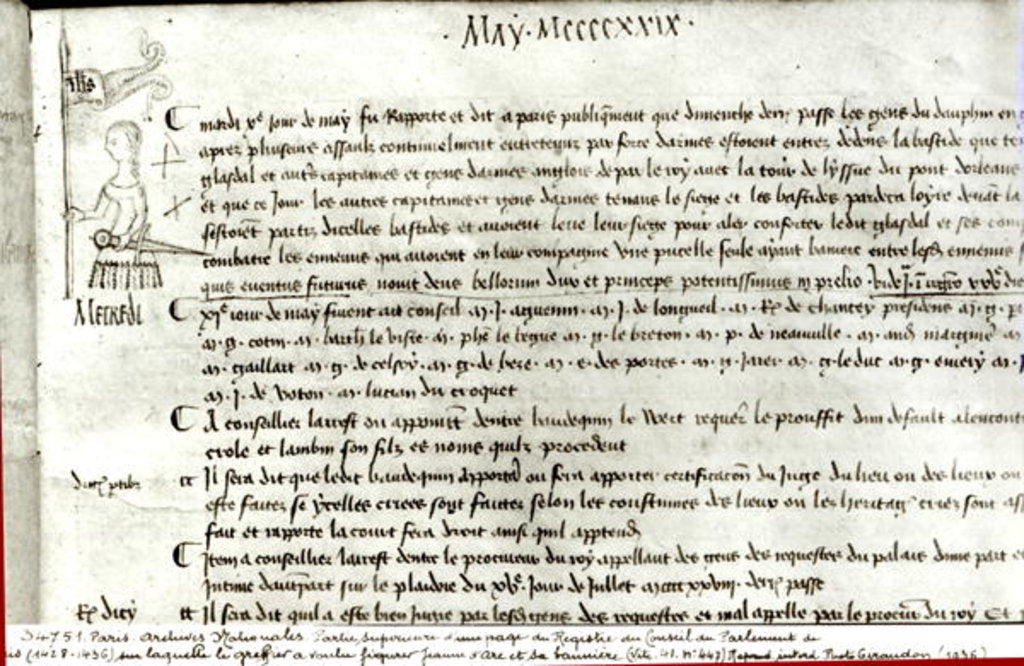 May · Mccccxxix ·
ihs
mardi xe jour de may fu Rapporte et dit a paris publiqment que dimenche derr passe les gens du dauphin en
apres pluseurs assaulx continuelment entretenuz par force darmes estoient entrez dedens la bastide que te
glasdal et autres capitaines et gens darmes anglois de par le roy avec la tour de lyssue du pont dorleans
et que ce jour les autres capitaines et gens darmes tenans le siege et les bastides pardeca loyre devant la
sestoient partiz dicelles bastides et avoient leve leur siege pour aler conforter ledit glasdal et ses com
combatre les ennemis qui avoient en leur compaignie une pucelle seule ayant baniere entre lesdis ennemis
quis eventus futurus novit deus bellorum dux et princeps potentissimus in prelio
Mercredi
xje jour de may furent au conseil m. J. aguenin m. J. de longueil m. R. de chancey presidens m. g.
m. g. cotin m. barth le viste m. phe le begue m. g. le breton m. p. de neauville m.
m. gaillart m. g. de celsoy m. g. de beze m. e. des portes m. g. Jaier m. g. le duc m. g. emery m.
m. J. de voton m. lucian du croquet
A conseillier larrest ou appointt dentre baudequin le Wert requer le prouffit dun default alencont
crole et lambin son filz es noms quilz procedent
Il sera dit que ledit baudequin apportera ou fera apporter certificacon du Juge du lieu ou des lieux ou
este faites se ycelles criees sont faictes selon les coustumes des lieux ou les heritag criez sont ass
fait et rapporte la court fera droit ainsi quil appartiend
Item a conseillier larrest dentre le procureur du roy appellant des gens des requestes du palais dune part et
intime dautrepart sur le plaidoie du xve Jour de Juillet mccccxxviii derr passe
Il sera dit quil a este bien jugie par lesdis gens des requestes et mal appelle par le procur du roy Et
34751. Paris. Archives Nationales. Partie supérieure d'une page du Registre du Conseil du Parlement de
is (1428-1436) sur laquelle le greffier a voulu figurer Jeanne d'Arc et sa bannière (Vite. 41. No 447) Reprod. interd. Photo Giraudon (1936)